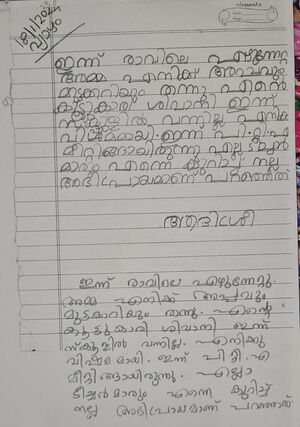 classmate
Date
Page
18/1/2024
വ്യാഴം
ഇന്ന് രാവിലെ എഴുന്നേറ്റ
അമ്മ എനിക്ക് അപ്പവും
മുട്ടക്കറിയും തന്നു എന്റെ
കൂട്ടുകാരി ശിവാനി ഇന്ന്
സ്കൂളിൽ വന്നില്ല എനിക്ക്
വിഷമമായി. ഇന്ന് പി.റ്റി.എ
മീറ്റിങ്ങായിരുന്നു എല്ലാ ടീച്ചർ
മാരും എന്നെ കുറിച്ച് നല്ല
അഭിപ്രായമാണ് പറഞ്ഞത്
ഇന്ന് രാവിലെ എഴുന്നേറ്റു.
അമ്മ എനിക്ക് അപ്പവും
മുട്ടകറിയും തന്നു. എന്റെ
കൂട്ടുകാരി ശിവാനി ഇന്ന്
സ്കൂളിൽ വന്നില്ല. എനിക്കു
വിഷമമായി. ഇന്ന് പി റ്റി എ
മീറ്റിങ്ങായിരുന്നു. എല്ലാ
ടീച്ചർമാരും എന്നെ കുറിച്ച്
നല്ല അഭിപ്രായമാണ് പറഞ്ഞത്